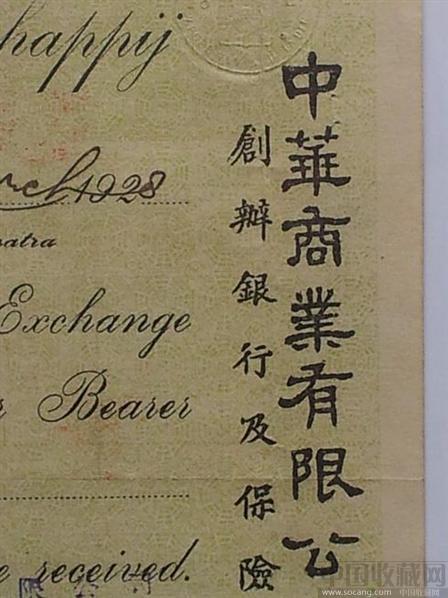 happij
1928
atra
Exchange
Bearer
received.
中華商業有限公
創辦銀行及保險
限
中国收藏网
www.socang.com 中国收藏网